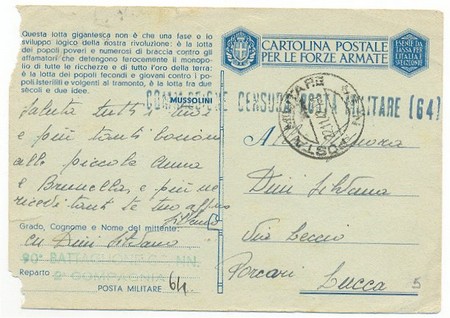 Questa lotta gigantesca non è che una fase e lo
sviluppo logico della nostra rivoluzione: è la lotta
dei popoli poveri e numerosi di braccia contro gli
affamatori che detengono ferocemente il monopolio
di tutte le ricchezze e di tutto l'oro della terra:
è la lotta dei popoli fecondi e giovani contro i po-
poli isteriliti e volgenti al tramonto, è la lotta fra due
secoli e due idee.
MUSSOLINI
CARTOLINA POSTALE
PER LE FORZE ARMATE
ESENTE DA
TASSA PER
L'ITALIA
COMMISSIONE CENSURA POSTA MILITARE (64)
POSTA MILITARE
Saluta tutti i miei
e più tanti bacioni
alla piccola Anna
e Brunella, e più ne
ricevi tanti te tuo
Grado, Cognome e Nome del mittente:
Dini
90° BATTAGLIONE CC. NN.
2ª COMPAGNIA
Reparto
POSTA MILITARE 64
Alla Signora
Dini
Via Leccio
Porcari Lucca
5